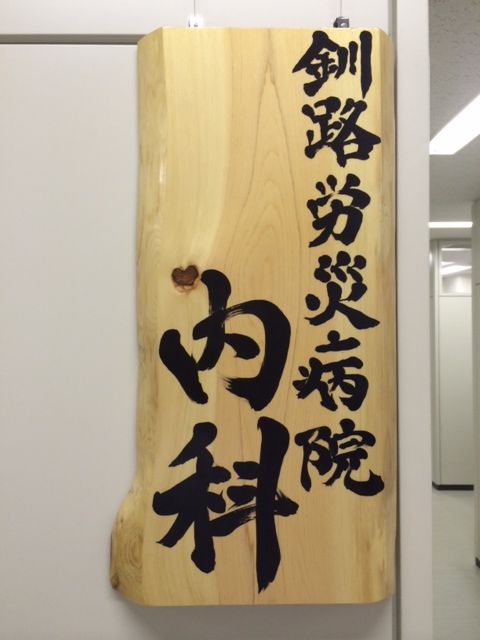 釧路労災病院
内科